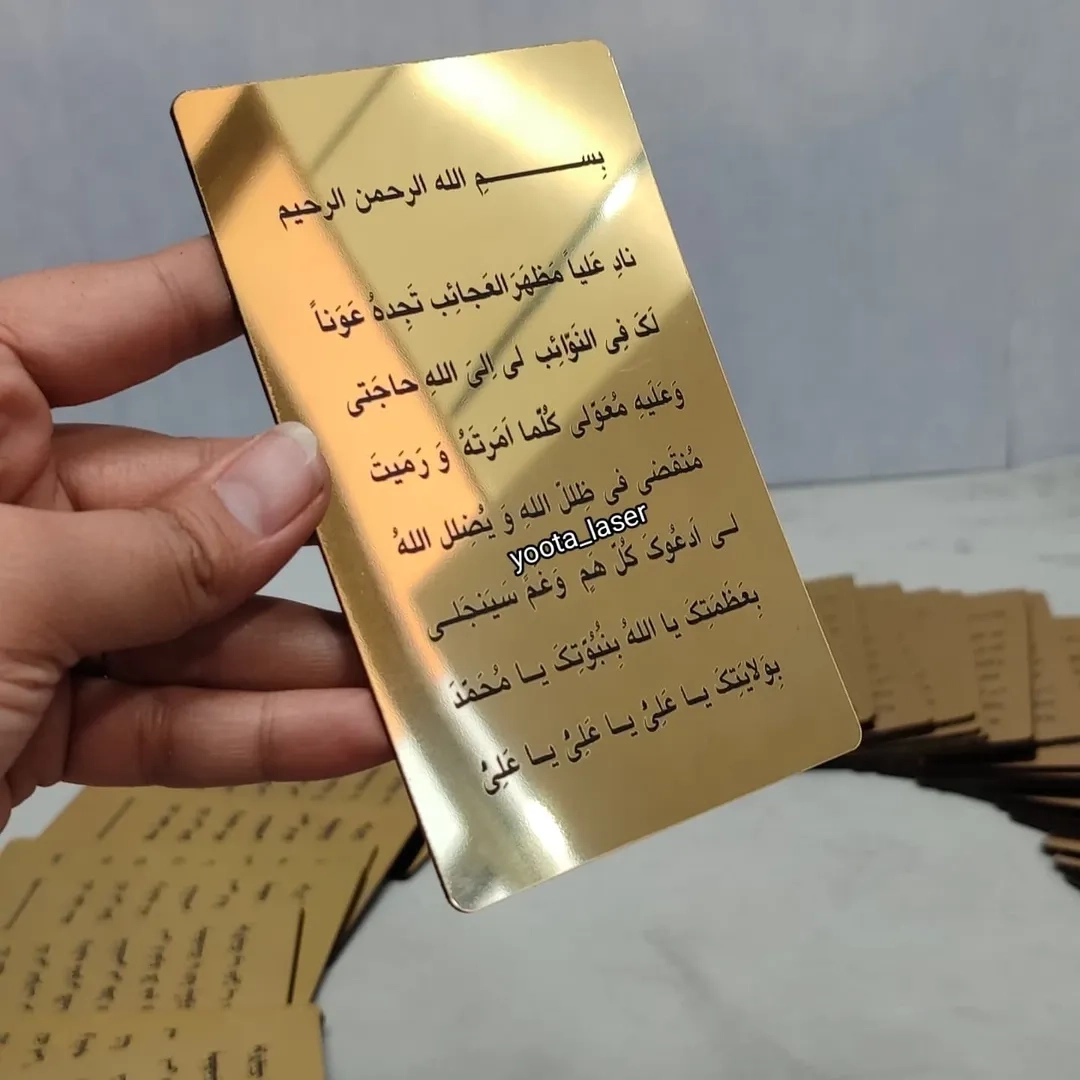 بِســـــــمِ الله الرحمن الرحیم
نادِ عَلیاً مَظهَرَ العَجائِب تَجِدهُ عَوَناً
لَکَ فِی النَوّائِب لی اِلیَ اللهِ حاجَتی
وَعَلَیهِ مُعَوّلی کُلَّما اَمَرتَهُ وَ رَمَیتَ
مُنقَضی فی ظِللّ اللهِ وَ یُضِلل اللهُ
لـی اَدعُوکَ کُلّ هَمٍ وَغمٍّ سَیَنجَلـی
بِعَظَمَتِکَ یا اللهُ بِنُبُوّتِکَ یـا مُحَمَّدَ
بِوَلایَتِکَ یـا عَلیُ یـا عَلیُ یـا عَلیُ
yoota_laser